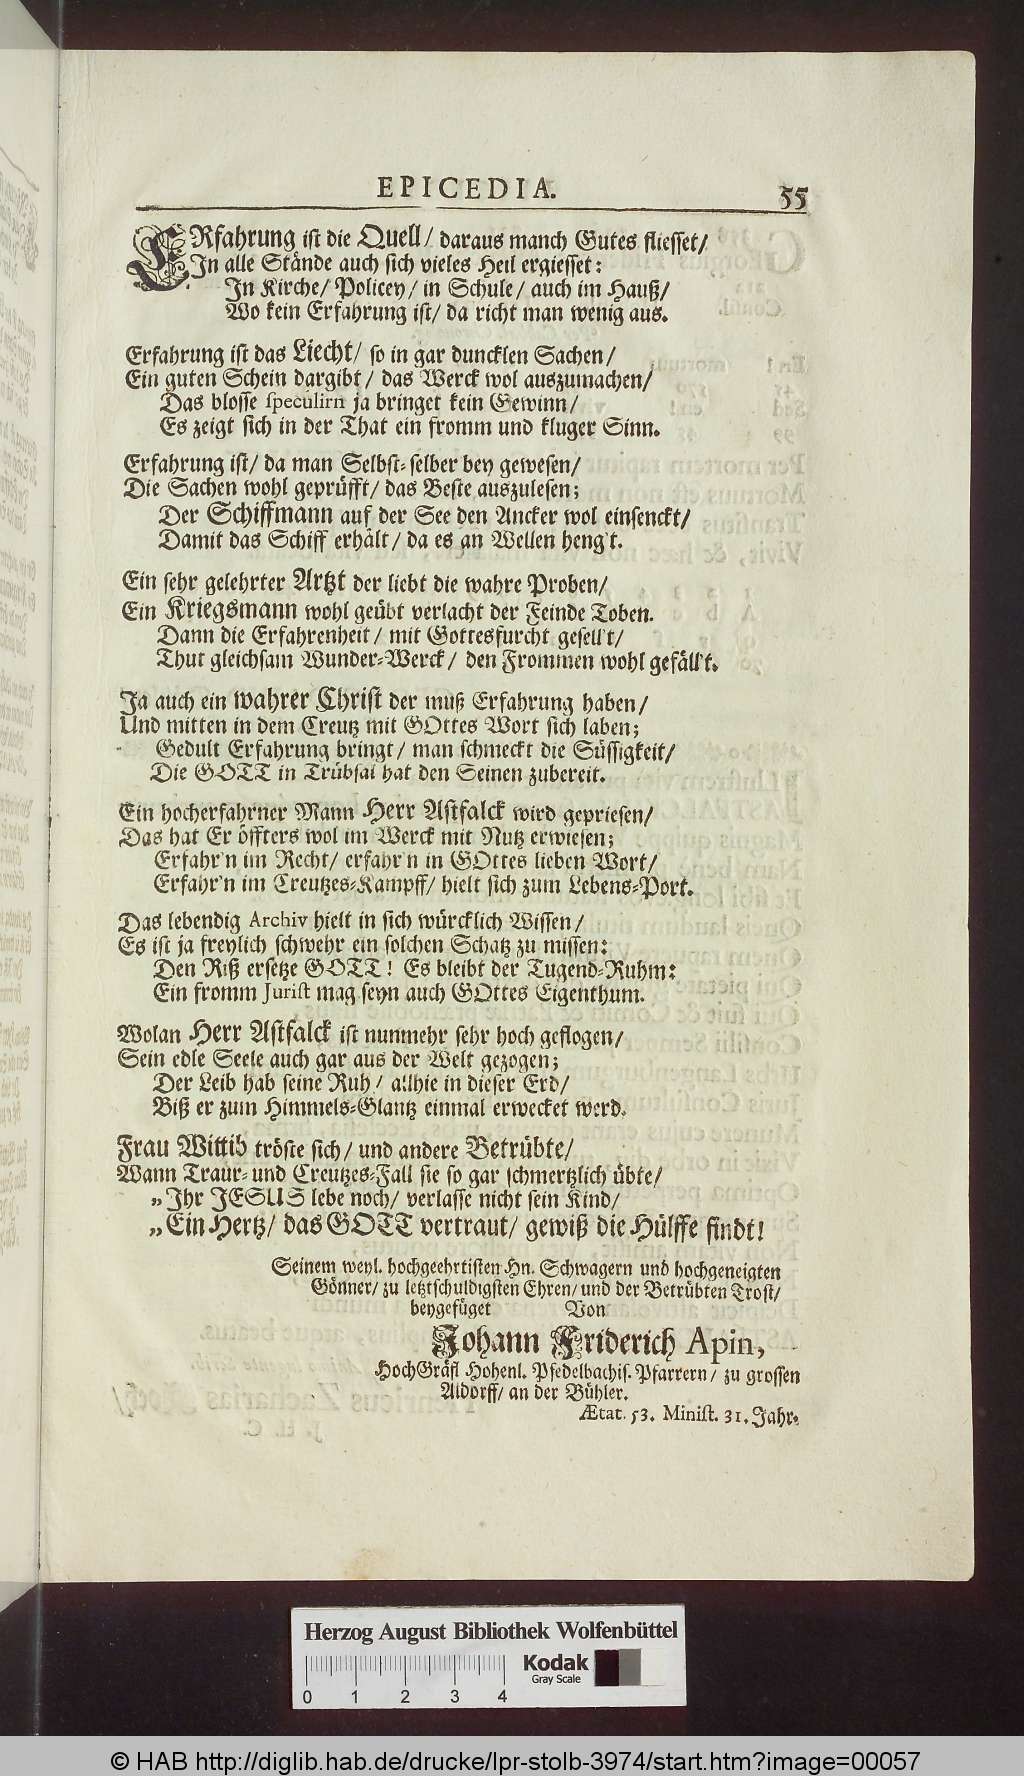 EPICEDIA. 55
ERfahrung ist die Quell/ daraus manch Gutes fliesset/
In alle Stände auch sich vieles Heil ergiesset:
In Kirche/ Policey/ in Schule/ auch im Hauß/
Wo kein Erfahrung ist/ da richt man wenig aus.
Erfahrung ist das Liecht/ so in gar duncklen Sachen/
Ein guten Schein dargibt/ das Werck wol auszumachen/
Das blosse speculirn ja bringet kein Gewinn/
Es zeigt sich in der That ein fromm und kluger Sinn.
Erfahrung ist/ da man Selbst-selber bey gewesen/
Die Sachen wohl geprüfft/ das Beste auszulesen;
Der Schiffmann auf der See den Ancker wol einsenckt/
Damit das Schiff erhält/ da es an Wellen heng't.
Ein sehr gelehrter Artzt der liebt die wahre Proben/
Ein Kriegsmann wohl geübt verlacht der Feinde Toben.
Dann die Erfahrenheit/ mit Gottesfurcht gesell't/
Thut gleichsam Wunder-Werck/ den Frommen wohl gefäll't.
Ja auch ein wahrer Christ der muß Erfahrung haben/
Und mitten in dem Creutz mit GOttes Wort sich laben;
Gedult Erfahrung bringt/ man schmeckt die Süssigkeit/
Die GOTT in Trübsal hat den Seinen zubereit.
Ein hocherfahrner Mann Herr Astfalck wird gepriesen/
Das hat Er öffters wol im Werck mit Nutz erwiesen;
Erfahr'n im Recht/ erfahr'n in GOttes lieben Wort/
Erfahr'n im Creutzes-Kampff/ hielt sich zum Lebens-Port.
Das lebendig Archiv hielt in sich würcklich Wissen/
Es ist ja freylich schwehr ein solchen Schatz zu missen:
Den Riß ersetze GOTT! Es bleibt der Tugend-Ruhm:
Ein fromm Jurist mag seyn auch GOttes Eigenthum.
Wolan Herr Astfalck ist nunmehr sehr hoch geflogen/
Sein edle Seele auch gar aus der Welt gezogen;
Der Leib hab seine Ruh/ allhie in dieser Erd/
Biß er zum Himmels-Glantz einmal erwecket werd.
Frau Wittib tröste sich/ und andere Betrübte/
Wann Traur- und Creutzes-Fall sie so gar schmertzlich übte/
„Ihr JESUS lebe noch/ verlasse nicht sein Kind/
„Ein Hertz/ das GOTT vertraut/ gewiß die Hülffe findt!
Seinem weyl. hochgeehrtisten Hn. Schwagern und hochgeneigten
Gönner/ zu letztschuldigsten Ehren/ und der Betrübten Trost/
beygefüget Von
Johann Friderich Apin,
HochGräfl Hohenl. Pfedelbachis. Pfarrern/ zu grossen
Aldorff/ an der Bühler.
Ætat. 53. Minist. 31. Jahr.
Herzog August Bibliothek Wolfenbüttel
Kodak
Gray Scale
0 1 2 3 4
© HAB http://diglib.hab.de/drucke/lpr-stolb-3974/start.htm?image=00057